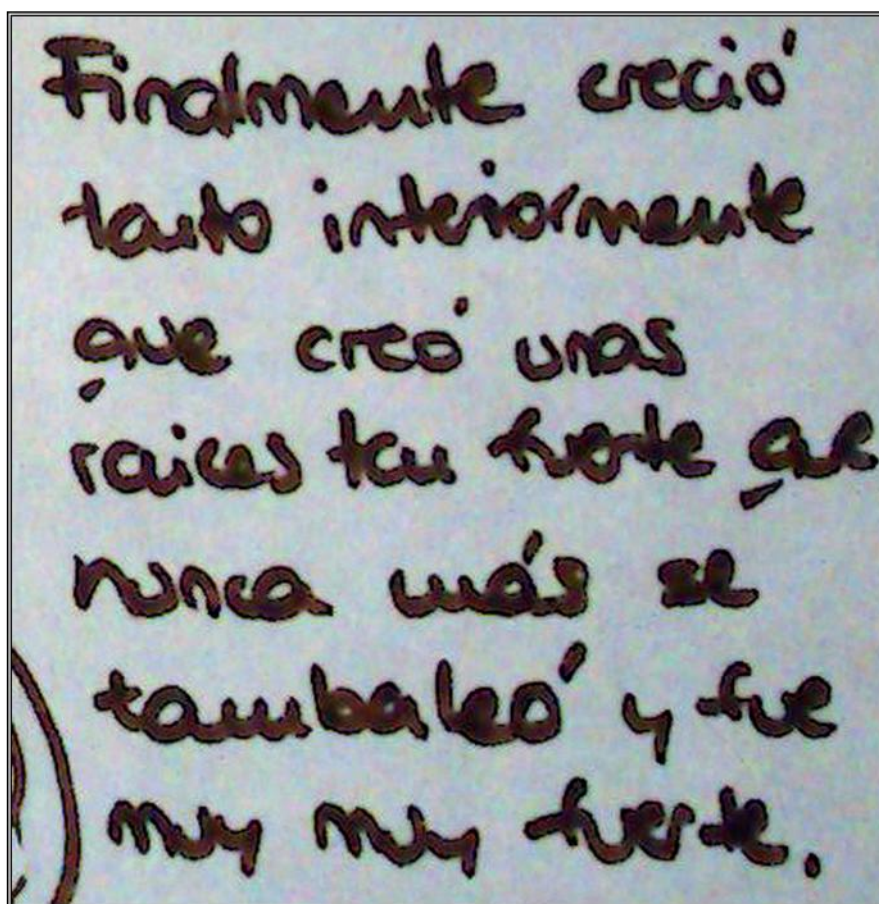 Finalmente creció
tanto interiormente
que creó unas
raices tan fuerte que
nunca más se
tambaleó y fue
muy muy fuerte.